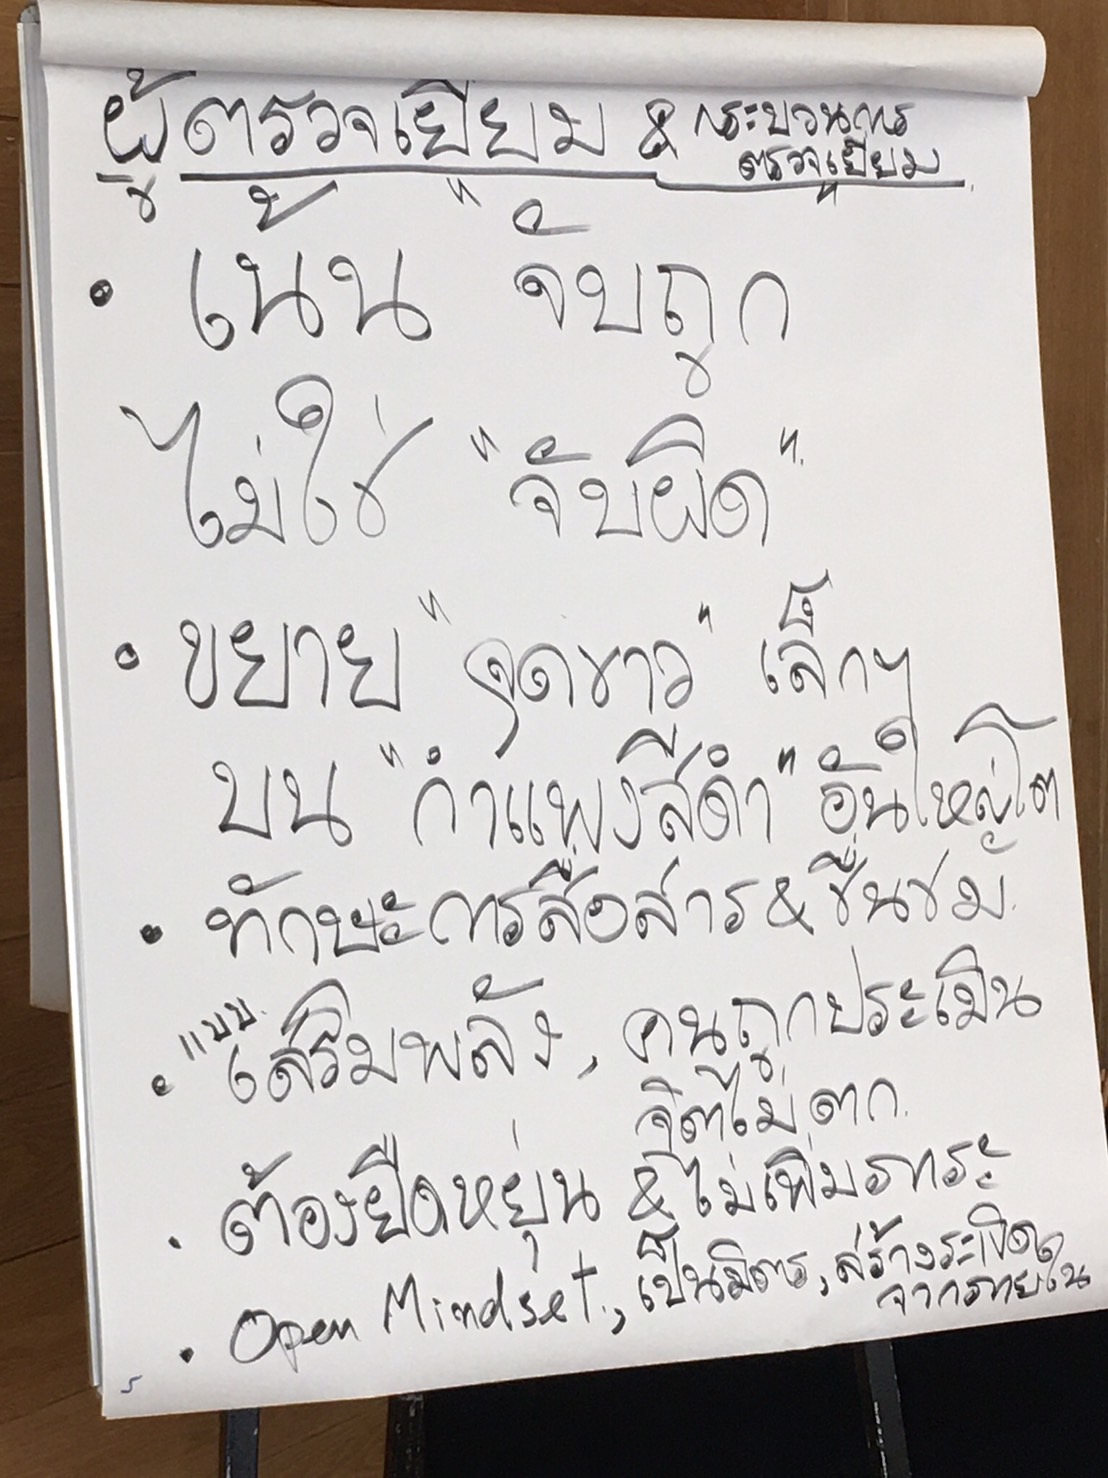 ผู้ตรวจเยี่ยม & กระบวนการ
ตรวจเยี่ยม
• เน้น "จับถูก"
ไม่ใช่ "จับผิด"
• ขยาย "จุดขาว" เล็กๆ
บน "กำแพงสีดำ" อันใหญ่โต
• ทักษะการสื่อสาร & ชื่นชม
• แบบเสริมพลัง, คนถูกประเมิน
จิตไม่ตก
• ต้องยืดหยุ่น & ไม่เพิ่มภาระ
• Open Mindset, เป็นมิตร, สร้างระเบิด
จากภายใน
5